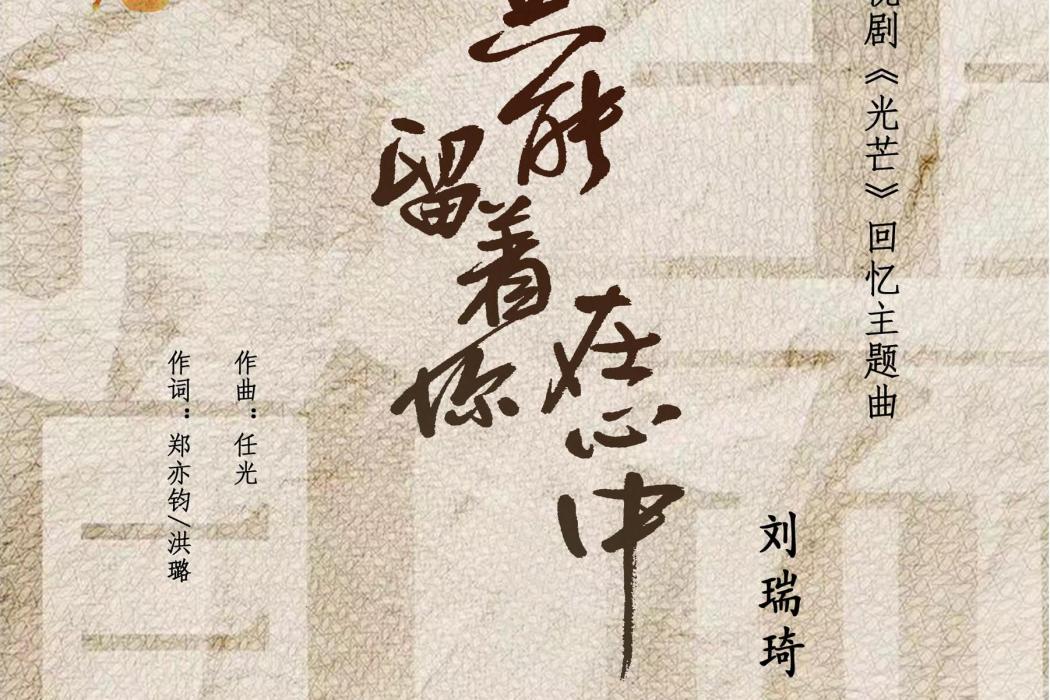 剧《光芒》回忆主题曲
能
留着你
在心中
刘瑞琦
作曲：任光
作词：郑亦钧/洪璐